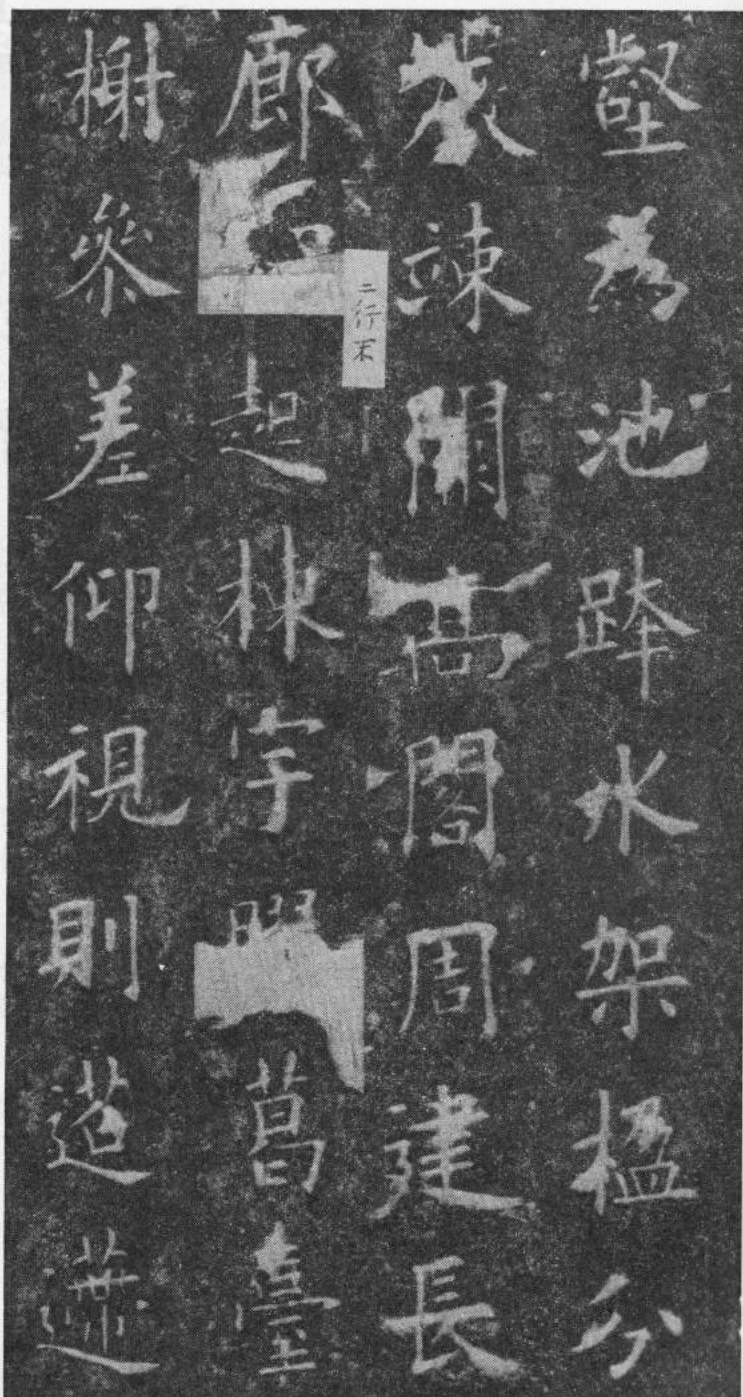 壑為池跨水架楹分
巖竦闕高閣周建長
廊起棟宇葛臺
二行末
榭參差仰視則迢遰